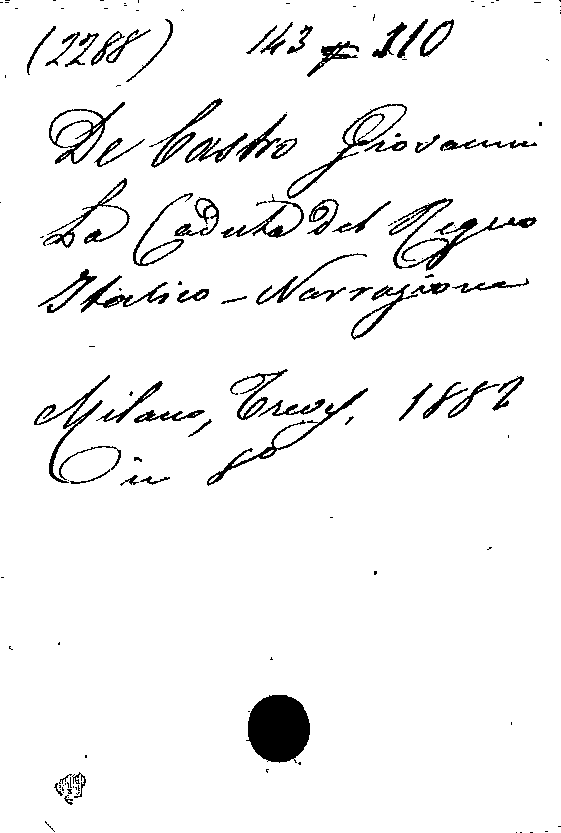 (2288) 143 F 110
De Castro Giovanni
La Caduta del Regno
Italico - Narrazione
Milano, Treves, 1882
in 8º